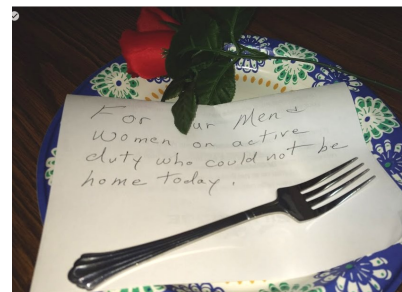 For ur Men &
Women on active
duty who could not be
home today.